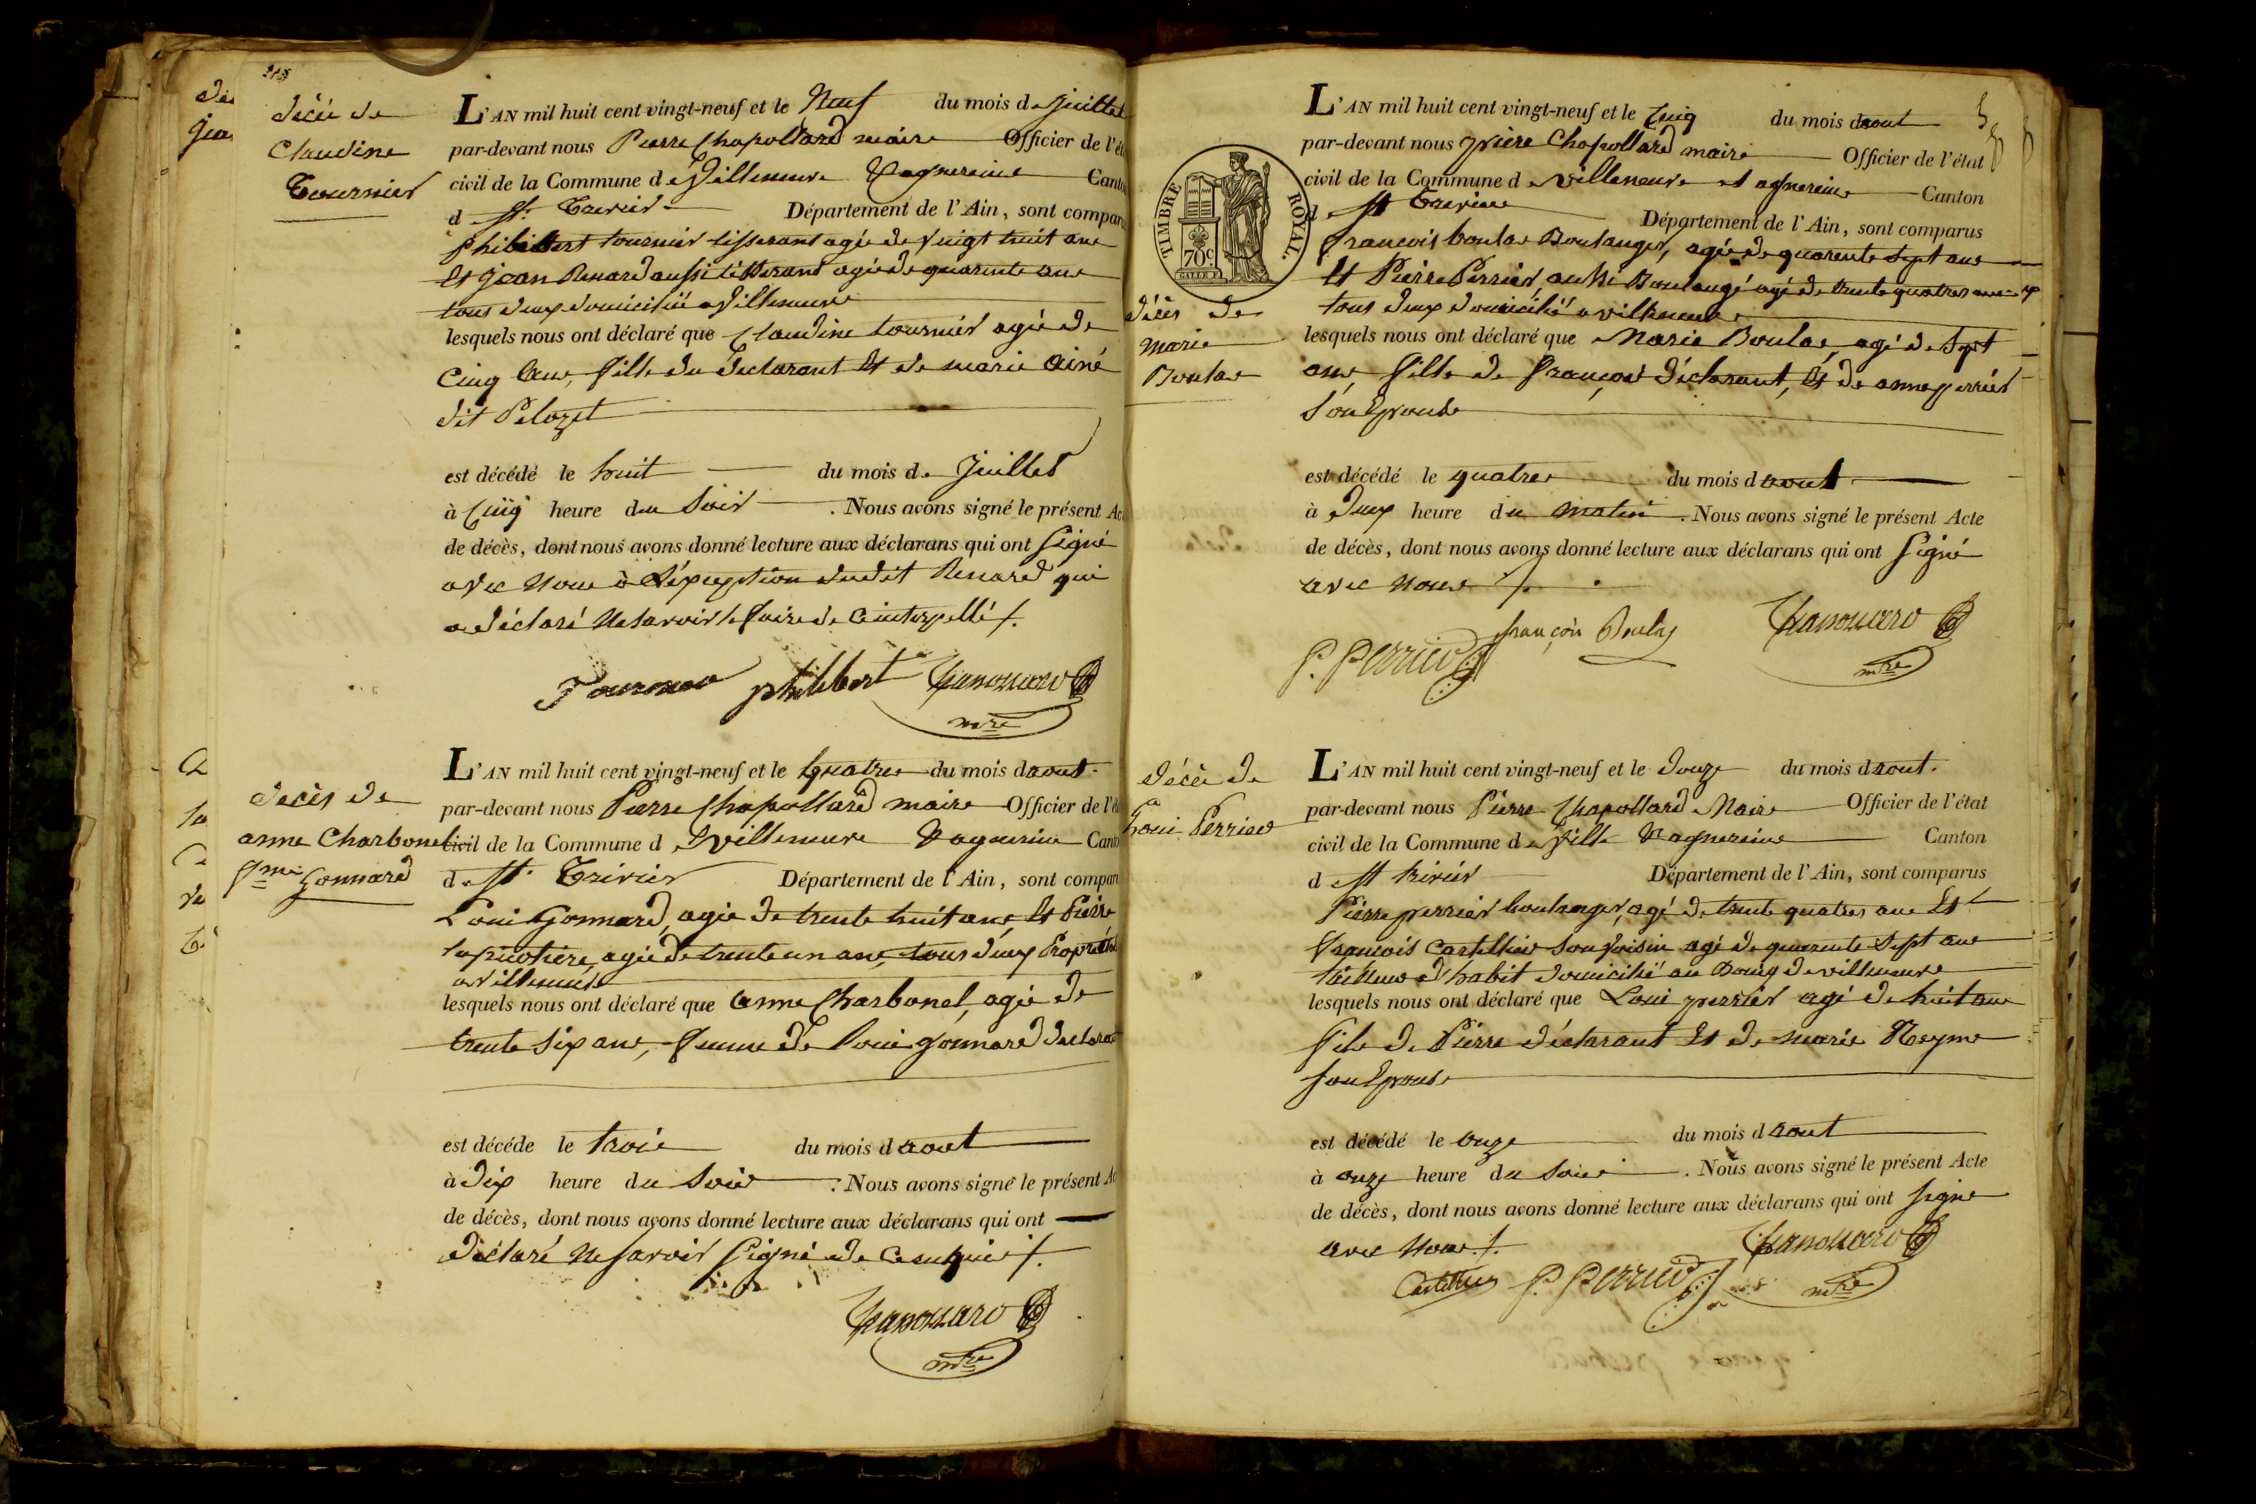 décès de
Claudine
Tournier
L'AN mil huit cent vingt-neuf et le Neuf du mois de Juillet
par-devant nous Pierre Chapollard maire Officier de l'ét
civil de la Commune de Villeneuve & agnereins Cant
de St. Trivier Département de l'Ain, sont compar
philibert tournier tisserant agée de vingt huit ans
et jean Renard aussi tisserand agée de quarente ans
tous deux domicilié a Villeneuve
lesquels nous ont déclaré que Claudine tournier agée de
Cinq Ans, fille du declarant et de marie Ainé
dit Pelozet
est décédé le huit du mois de Juillet
à Cinq heure du Soir . Nous avons signé le présent Ac
de décès, dont nous avons donné lecture aux déclarans qui ont Signé
avec nous à L'exception dudit Renard qui
a déclaré Ne savoir le faire de ce interpellé
philibert
mre
décès de
anne Charbonel
fme Gonnard
L'AN mil huit cent vingt-neuf et le quatre du mois d aout
par-devant nous Pierre Chapollard maire Officier de l'é
civil de la Commune d villeneuve & agnereins Cant
de St. Trivier Département de l'Ain, sont compar
Loui Gonnard, agée de trente huit ans, et Pierre
agée de trente un ans, tous deux
a Villeneuve
lesquels nous ont déclaré que Anne Charbonel, agée de
trente six ans, femme de Loui gonnard declarant
est décéde le trois du mois d aout
à Dix heure du Soir . Nous avons signé le présent Ac
de décès, dont nous avons donné lecture aux déclarans qui ont
déclaré Ne savoir Signé de ce enquis
mre
TIMBRE ROYAL.
70c
décès de
Marie
Boulas
L'AN mil huit cent vingt-neuf et le Cinq du mois d aout
par-devant nous pierre Chapollard maire Officier de l'état
civil de la Commune de villeneuve et agnereins Canton
de St Trivier Département de l'Ain, sont comparus
francois boulas Boulanger, agée de quarente sept ans
et Pierre Perrier aussi Boulangé agé de trente quatres ans
tous deux domicilié a villeneuve
lesquels nous ont déclaré que Marie Boulas agé de sept
ans, fille de françois déclarant, et de anne perrier
son Epouse
est décédé le quatre du mois d aout
à Deux heure du matin . Nous avons signé le présent Acte
de décès, dont nous avons donné lecture aux déclarans qui ont Signé
avec nous
françois Boulas
P. Perrier
mre
décès de
Loui Perrier
L'AN mil huit cent vingt-neuf et le Douze du mois d aout.
par-devant nous Pierre Chapollard Maire Officier de l'état
civil de la Commune de Ville & agnereins Canton
de St trivier Département de l'Ain, sont comparus
Pierre perrier boulanger, agé de trente quatres ans et
françois son voisin agé de quarente sept ans
tailleur d'habit domicilié au Bourg de villeneuve
lesquels nous ont déclaré que Loui perrier agé de huit ans
fils de Pierre déclarant et de marie Neyme
son Epouse
est décédé le onze du mois d aout
à onze heure du soir . Nous avons signé le présent Acte
de décès, dont nous avons donné lecture aux déclarans qui ont signe
avec Nous
P. Perrier
mre